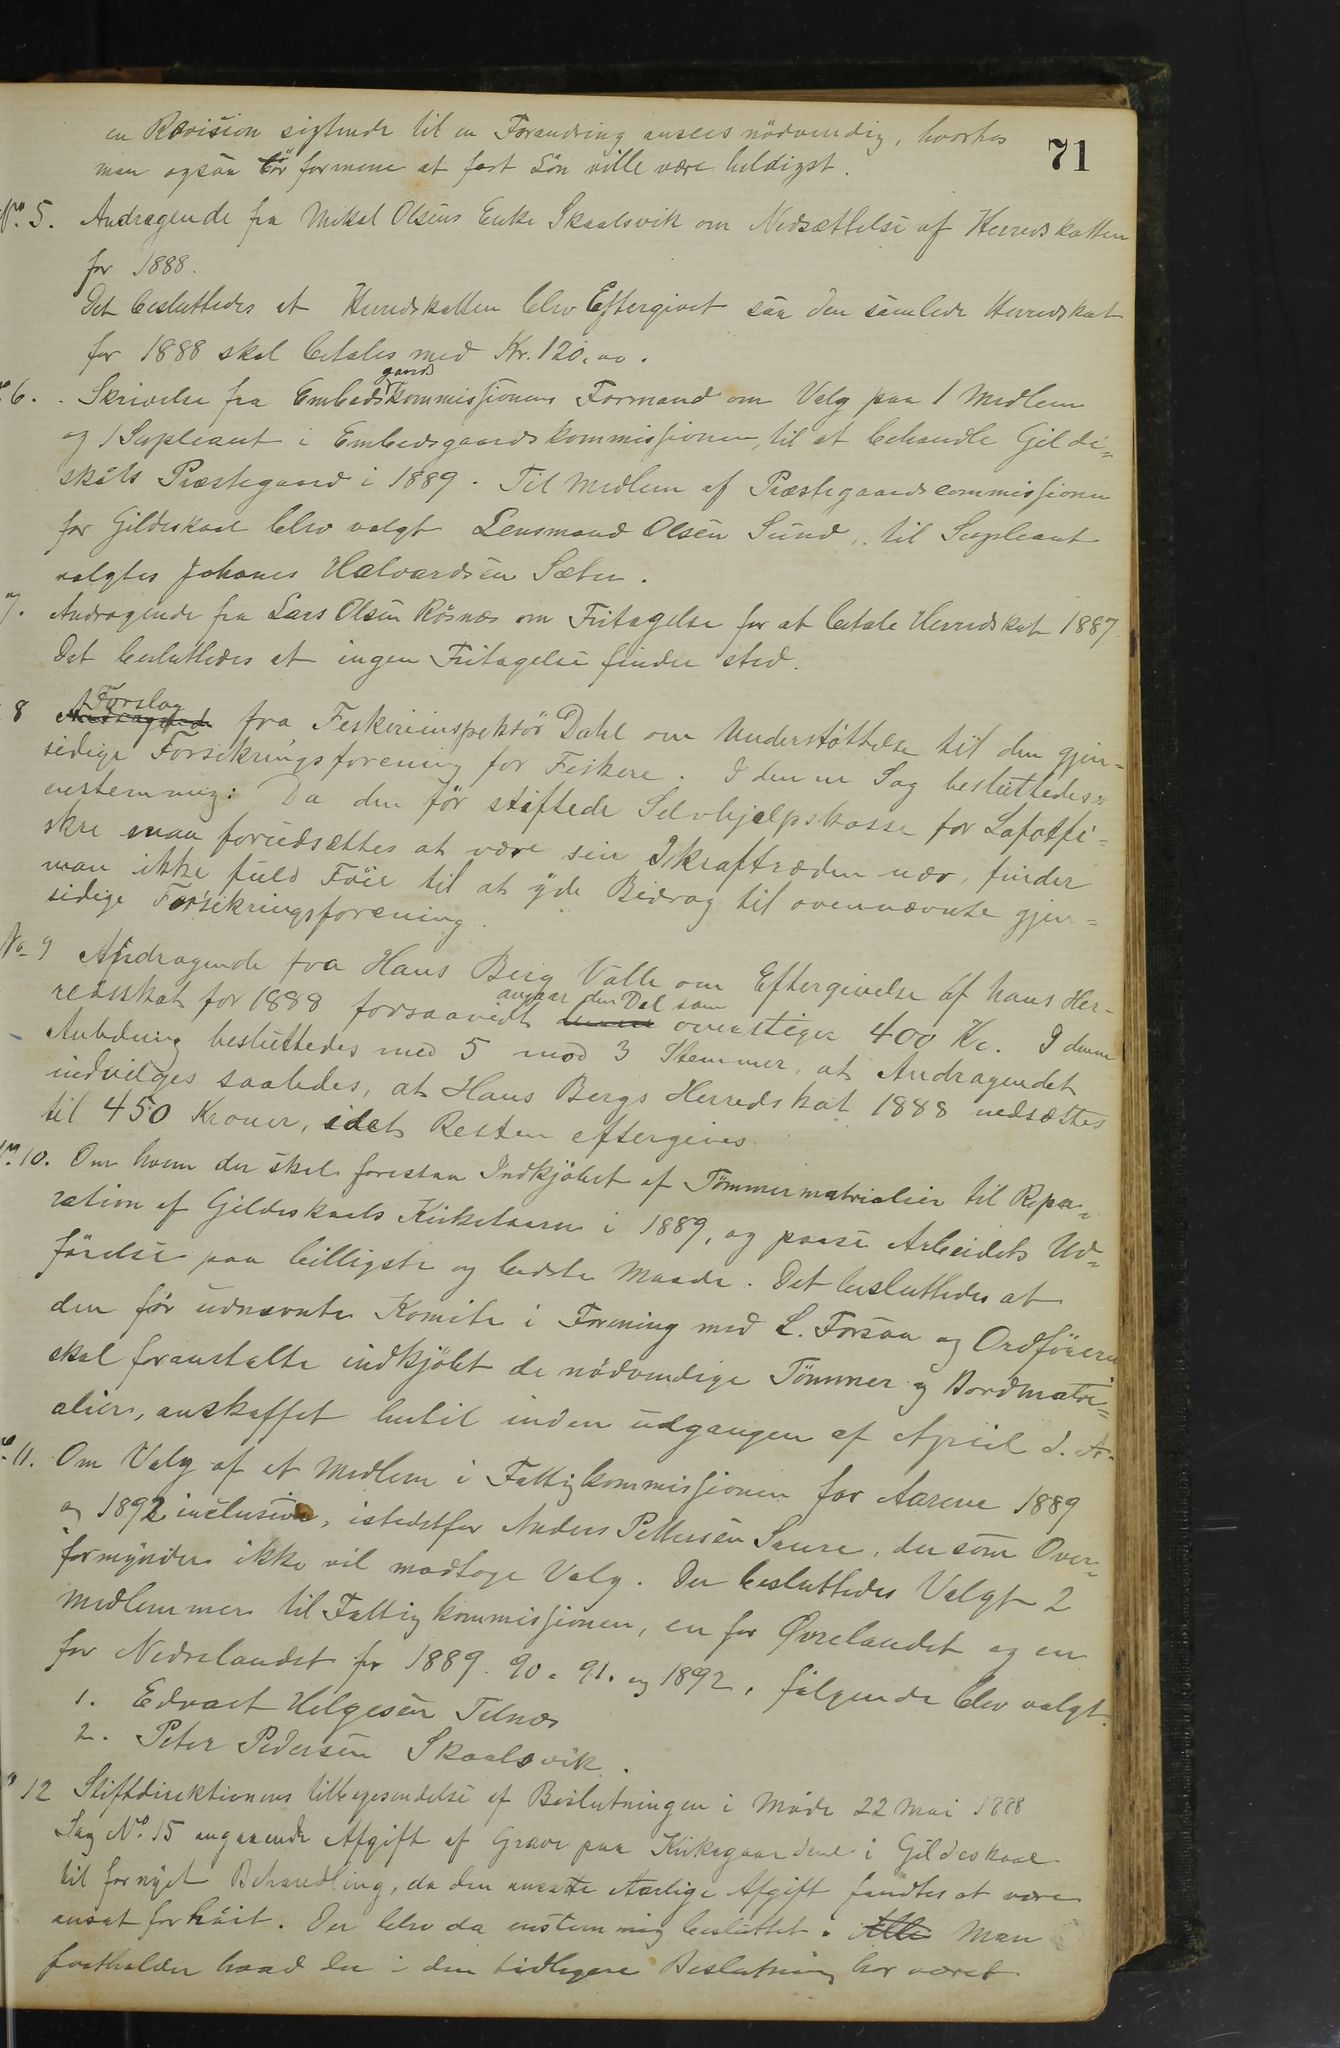 71
en Revision sigtende til en Forandring ansees nödvendig, hvorhos
man ogsaa tör formene at fast Lön ville være heldigst.
No. 5. Andragende fra Mikal Olsens Enke Skaalsvik om Nedsættelse af Herredskatten
for 1888.
Det besluttedes at Herredskatten blev Eftergivet saa den samlede Herredskat
for 1888 skal betales med Kr. 120.00.
6. Skrivelse fra Embedsgaardskommissjonens Formand om Valg paa 1 Medlem
og 1 Supleant i Embedsgaardskommissjonen, til at behandle Gilde=
skåls Præstegaard i 1889. Til Medlem af Præstegaardscommissjonen
for Gildeskaal blev valgt Lensmand Olsen Sund, til Supleant
valgtes Johanes Halvardsen Sæter.
7. Andragende fra Lars Olsen Rösnæs om Fritagelse for at betale Herredskat 1887.
Det besluttedes at ingen Fritagelse finder sted.
8 Andragende Forslag fra Feskeriinspektör Dahl om Understöttelse til den gjen=
sidige Forsikringsforening for Feskere. I denne Sag besluttedes
enstemmig: Da den för stiftede Selvhjælpskasse for Lofotfi=
skre maa forudsættes at være sin Ikraftræden nær, finder
man ikke fuld Föie til at yde Bidrag til ovennævnte gjen=
sidige Forsikringsforening.
No 9 Andragende fra Hans Berg Valle om Eftergivelse af hans Her-
redsskat for 1888 forsaavidt angaar den Del som overstiger 400 Kr. I denne
Anledning besluttedes med 5 mod 3 Stemmer, at Andragendet
indvilges saaledes, at Hans Bergs Herredskat 1888 nedsættes
til 450 Kroner, idet Resten eftergives.
No. 10. Om hvem der skal forestaa Indkjöbet af Tömmermatrialier til Repa=
ration af Gildeskaals Kirketaarn i 1889, og paase Arbeidets Ud=
förelse paa billigste og bedste Maade. Det besluttedes at
den för udnævnte Komite i Forening med L. Forsaa og Ordföreren
skal foranstalte indkjöbt de nödvendige Tömmer og Bordmatri=
alier, anskaffet hertil inden udgangen af April d. A.
11. Om Valg af et Medlem i Fattigkommissjonen for Aarene 1889
og 1892 inclusive, istedetfor Anders Pettersen Saura, der som Over=
formynder ikke vil modtage Valg. Der besluttedes Valgt 2
Medlemmer til Fattigkommissjonen, en for Øvrelandet og en
for Nedrelandet for 1889. 90. 91. og 1892, fölgende blev valgt.
1. Edvart Helgesen Telnæs
2. Peter Pedersen Skaalsvik.
12 Stiftdirektionens tilbagesendelse af Beslutningen i Möde 22 Mai 1888
Sag No. 15 angaaende Afgift af Grave paa Kirkegaardene i Gildeskaal
til fornyet Behandling, da den ansatte Aarlige Afgift fandtes at være
ansat for höit. Der blev da enstemmig besluttet: Man
fastholder hvad der i den tidligere Beslutning har været